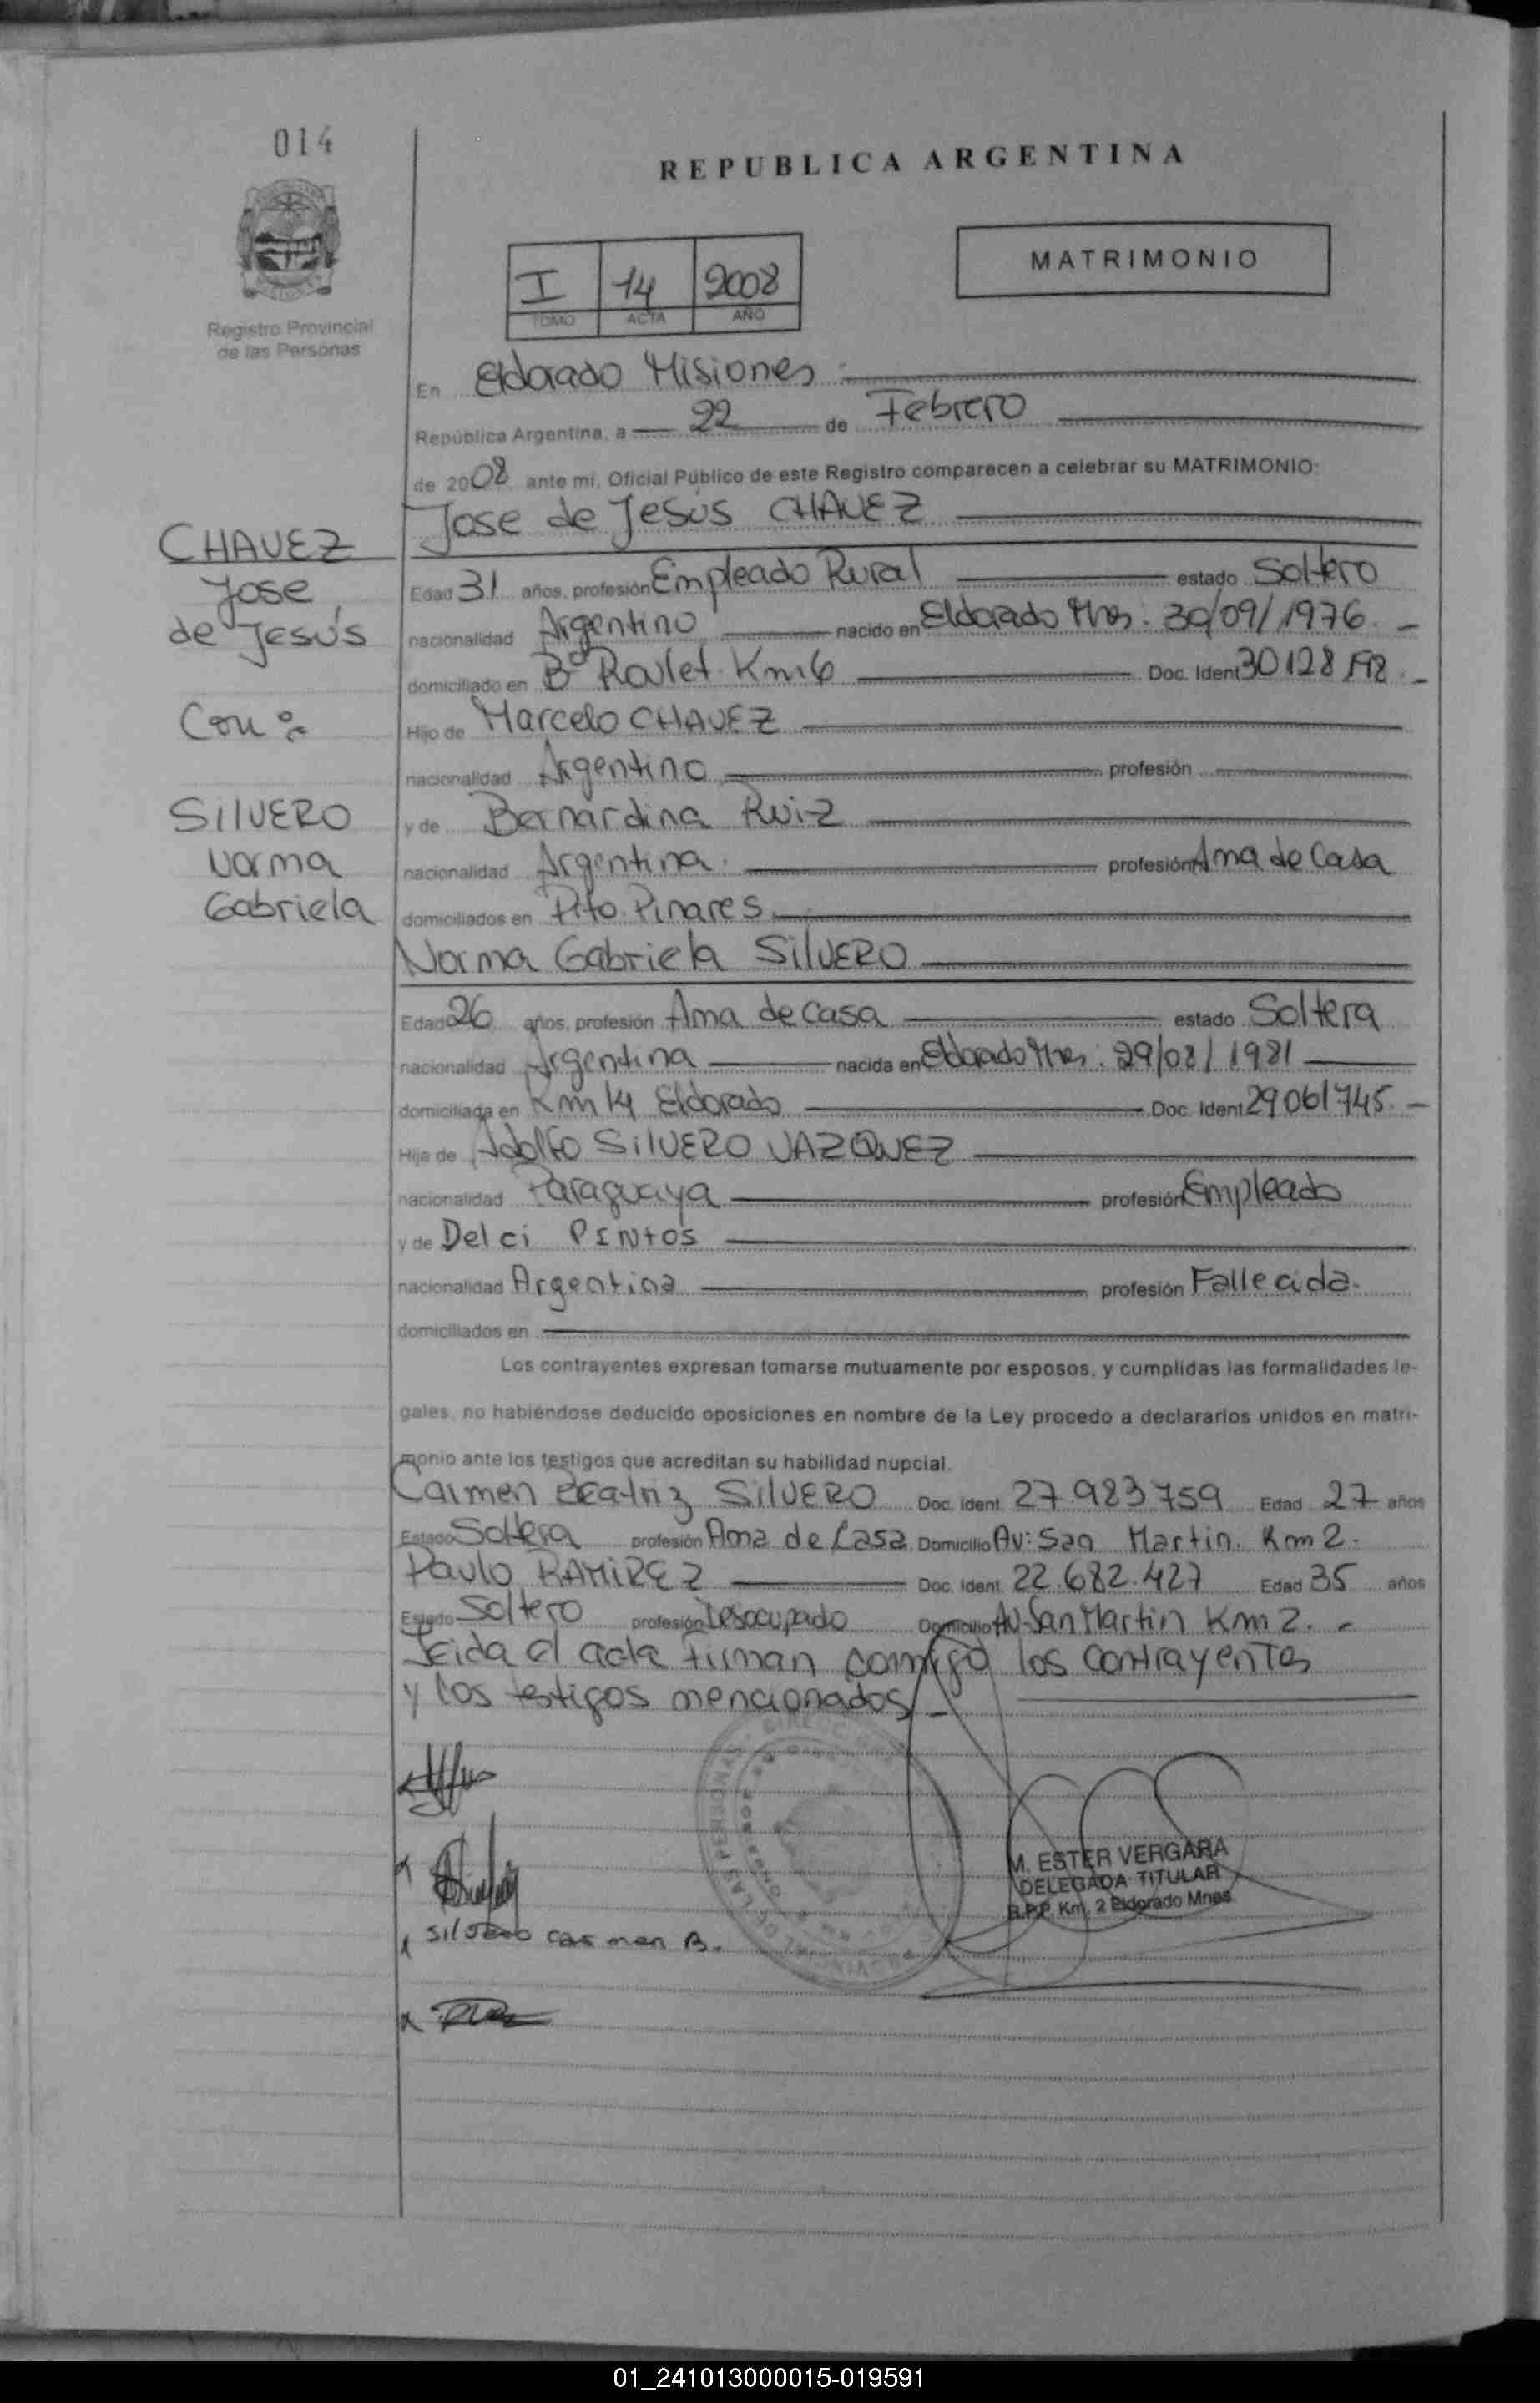 014
REPUBLICA ARGENTINA
MATRIMONIO
I 14 2008
TOMO ACTA AÑO
Registro Provincial
de las Personas
En Eldorado Misiones
República Argentina, a 22 de Febrero
de 2008 ante mí, Oficial Público de este Registro comparecen a celebrar su MATRIMONIO:
Jose de Jesús CHAVEZ
CHAVEZ
Jose
de Jesús
Con:
SilVERO
Norma
Gabriela
Edad 31 años, profesión Empleado Rural estado Soltero
nacionalidad Argentino nacido en Eldorado Mnes: 30/09/1976. -
domiciliado en Bº Roulet Km 6 Doc. Ident 30128
Hijo de Marcelo CHAVEZ
nacionalidad Argentino profesión
y de Bernardina Ruiz
nacionalidad Argentina. profesión Ama de Casa
domiciliados en Pto. Pinares
Norma Gabriela SilVERO
Edad 26 años, profesión Ama de casa estado Soltera
nacionalidad Argentina nacida en Eldorado Mnes: 29/08/1981
domiciliada en Km 14 Eldorado Doc. Ident 29061745. -
Hija de Adolfo SilVERO VAZQUEZ
nacionalidad Paraguaya profesión Empleado
y de Delci PINtos
nacionalidad Argentina profesión Fallecida.
domiciliados en
Los contrayentes expresan tomarse mutuamente por esposos, y cumplidas las formalidades le-
gales, no habiéndose deducido oposiciones en nombre de la Ley procedo a declararlos unidos en matri-
monio ante los testigos que acreditan su habilidad nupcial.
Carmen Beatriz SilVERO Doc. Ident. 27.983759 Edad 27 años
Estado Soltera profesión Ama de Casa Domicilio Av: San Martin. Km 2.
Paulo RAMIREZ Doc. Ident. 22.682.427 Edad 35 años
Estado Soltero profesión Desocupado Domicilio AV. San Martin Km 2. -
Leida el acta firman conmigo los contrayentes
y los testigos mencionados. -
M. ESTER VERGARA
DELEGADA TITULAR
R.P.P. Km. 2 Eldorado Mnes.
Silvero Carmen B.
01_241013000015-019591